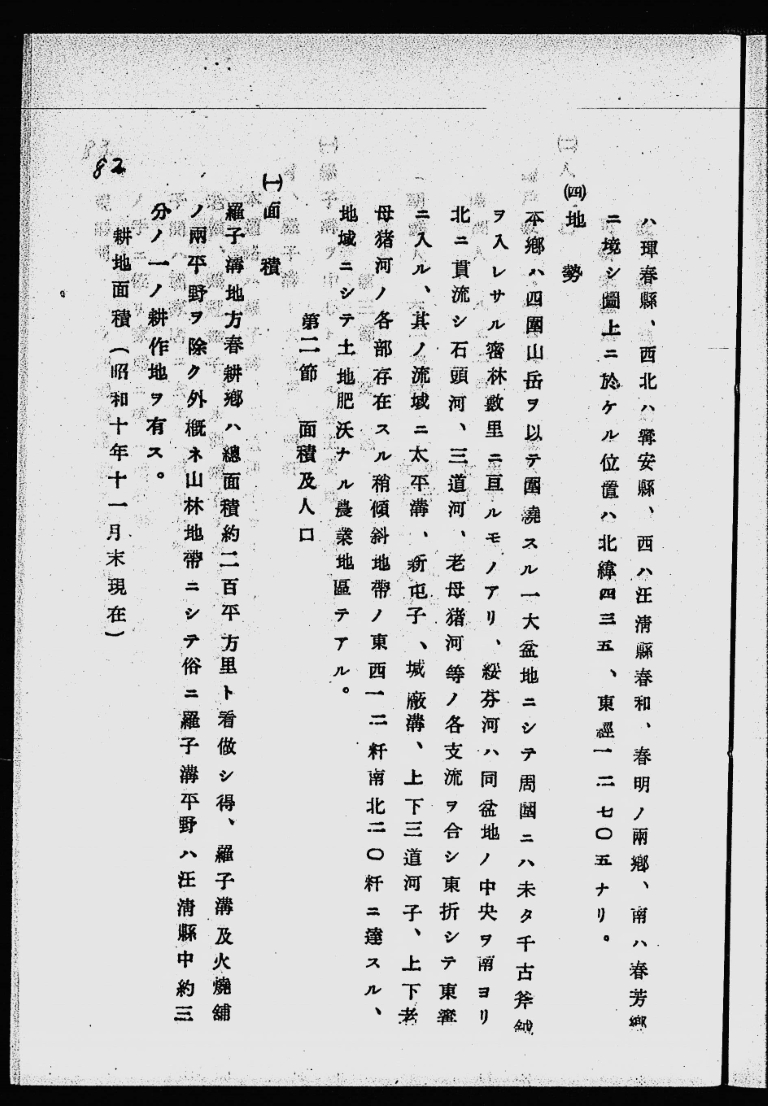 ハ琿春縣、西北ハ寗安縣、西ハ汪淸縣春和、春明ノ兩鄕、南ハ春芳鄕
ニ境シ圖上ニ於ケル位置ハ北緯四三五、東經一二七〇五ナリ。
㈣地勢
本鄕ハ四圍山岳ヲ以テ圍繞スル一大盆地ニシテ周圍ニハ未タ千古斧鉞
ヲ入レサル密林數里ニ亘ルモノアリ、綏芬河ハ同盆地ノ中央ヲ南ヨリ
北ニ貫流シ石頭河、三道河、老母猪河等ノ各支流ヲ合シ東折シテ東寗
ニ入ル、其ノ流域ニ太平溝、新屯子、城廠溝、上下三道河子、上下老
母猪河ノ各部存在スル稍傾斜地帶ノ東西一二粁南北二〇粁ニ達スル、
地域ニシテ土地肥沃ナル農業地區テアル。
第二節 面積及人口
㈠面積
羅子溝地方春耕鄕ハ總面積約二百平方里ト看做シ得、羅子溝及火燒舖
ノ兩平野ヲ除ク外概ネ山林地帶ニシテ俗ニ羅子溝平野ハ汪淸縣中約三
分ノ一ノ耕作地ヲ有ス。
耕地面積(昭和十年十一月末現在)
82